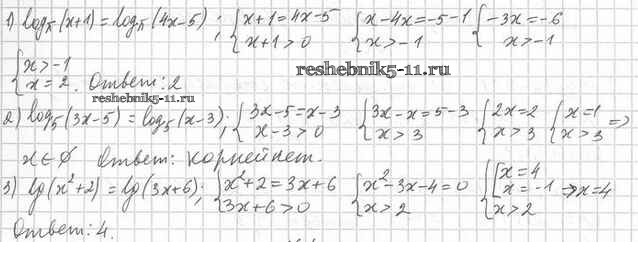 1) log_π(x+1) = log_π(4x-5) ; { x+1=4x-5 x+1>0 { x-4x=-5-1 x>-1 { -3x=-6 x>-1
{ x>-1 x=2. Ответ: 2
reshebnik5-11.ru
reshebnik5-11.ru
2) log_5(3x-5) = log_5(x-3) ; { 3x-5=x-3 x-3>0 { 3x-x=5-3 x>3 { 2x=2 x>3 { x=1 x>3 =>
x∈∅ Ответ: корней нет.
3) lg(x²+2) = lg(3x+6) ; { x²+2=3x+6 3x+6>0 { x²-3x-4=0 x>2 { [ x=4 x=-1 x>2 => x=4
Ответ: 4.